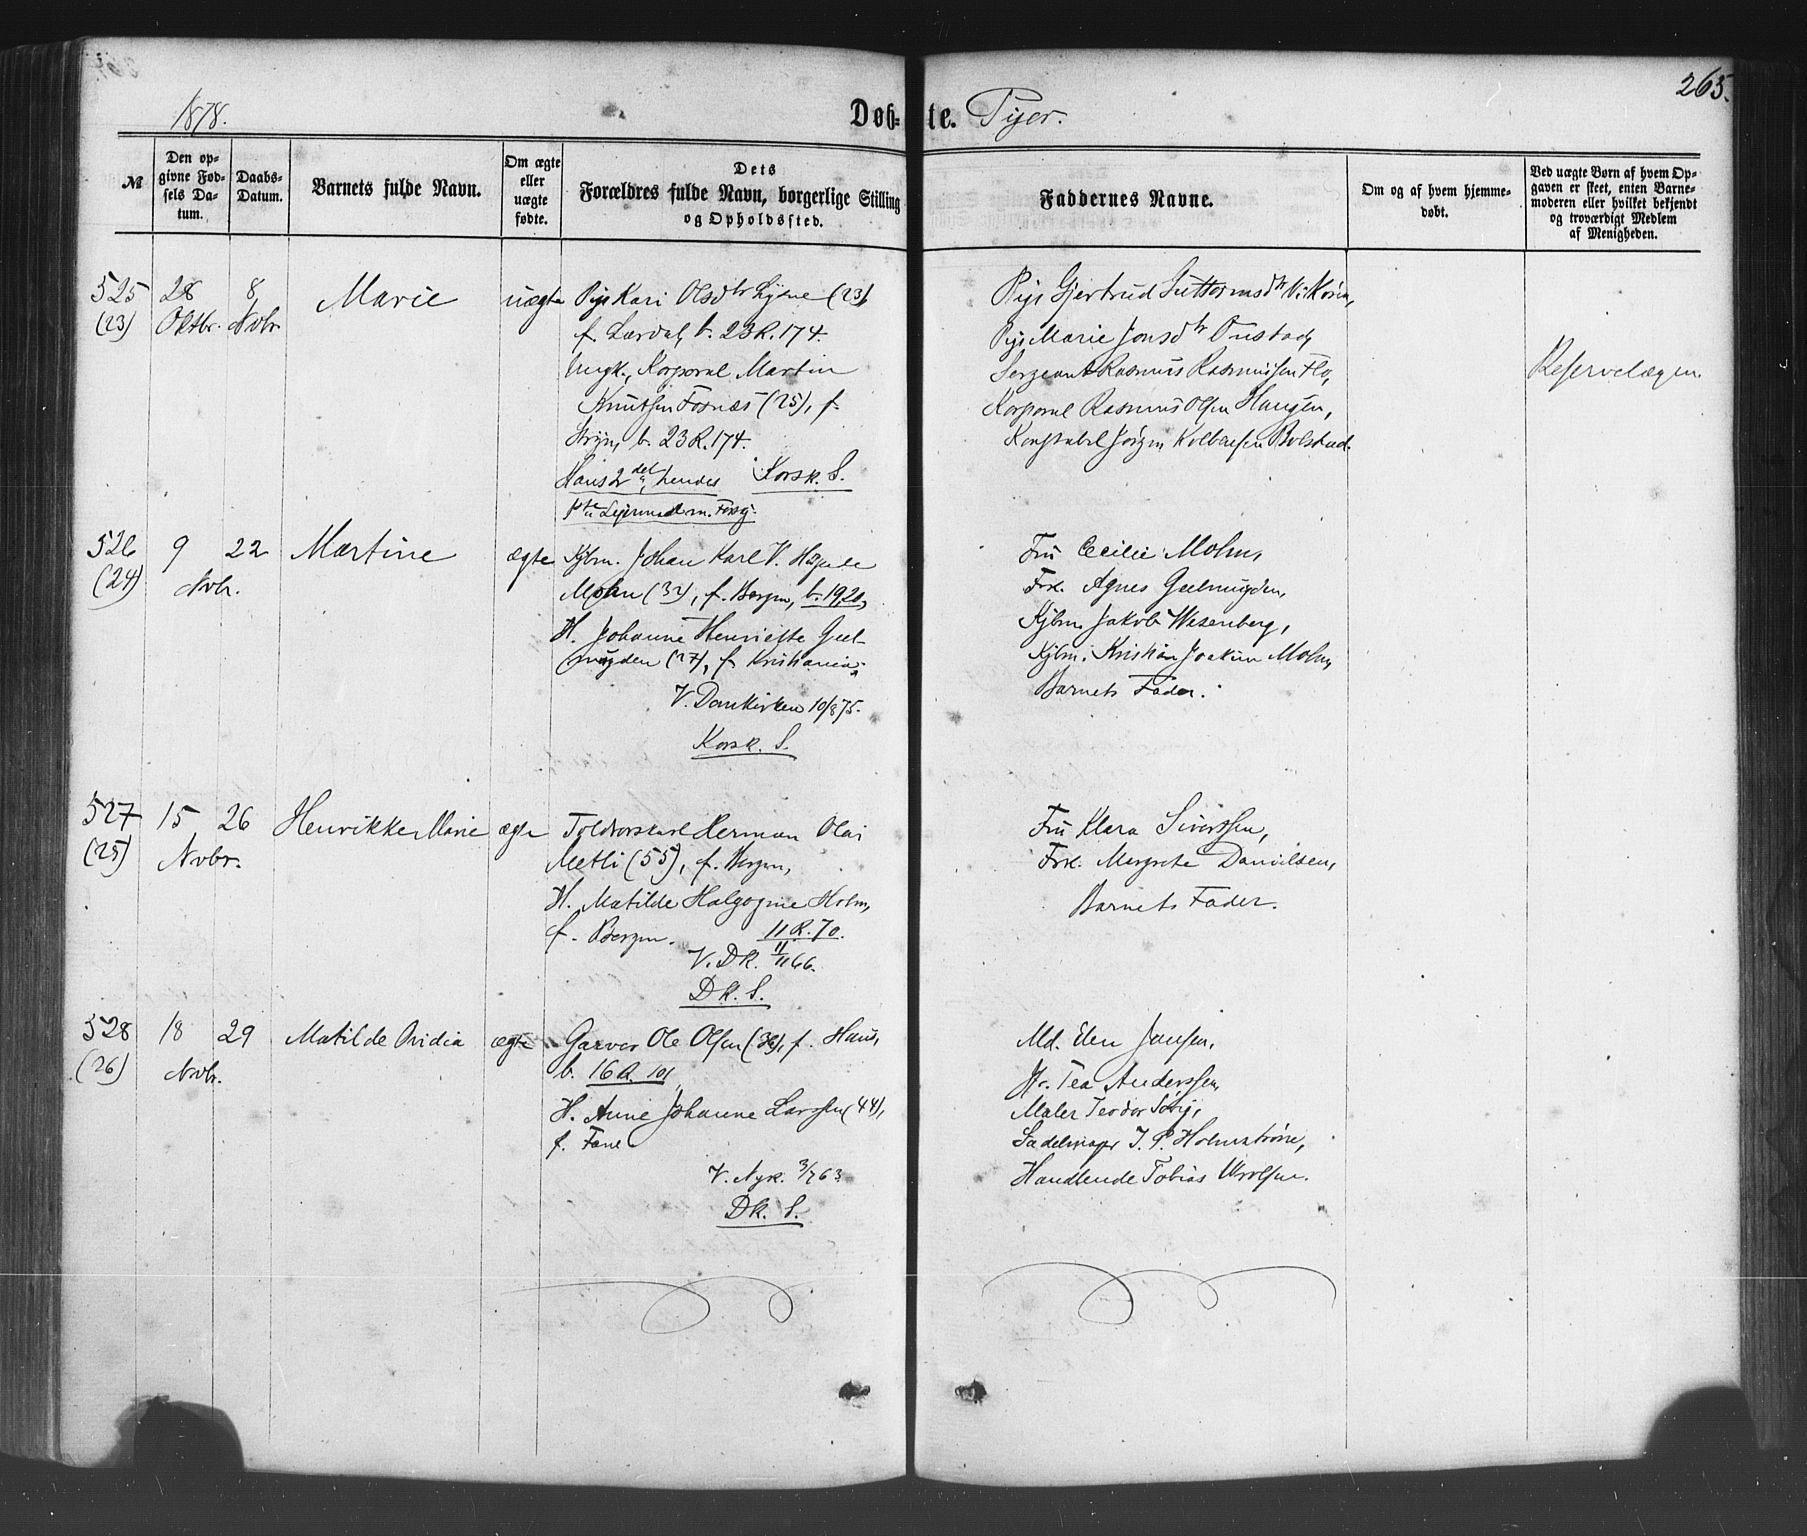 265.
1878.
Døb-te. Piger.
№
Den opgivne Fødsels Datum.
Daabs-Datum.
Barnets fulde Navn.
Om ægte eller uægte fødte.
Dets Forældres fulde Navn, borgerlige Stilling og Opholdssted.
Faddernes Navne.
Om og af hvem hjemmedøbt.
Ved uægte Børn af hvem Opgaven er skeet, enten Barnemoderen eller hvilket bekjendt og troværdigt Medlem af Menigheden.
525 (23)
28 Oktbr.
8 Nvbr
Marie
uægte
Pige Kari Olsdtr Lysne (23)
f. Lærdal, b. 23 R. 174.
Ungk., Korporal Martin
Knutsen Fosnæs (25), f.
Stryn, b. 23 R. 174.
Hans 2det, hendes Korsk. S.
1ste Leiermaal m. Forsg.
Pige Gjertrud
Pige Marie Jonsdtr
Sergeant Rasmus Rasmussen Flo,
Korporal Rasmus Olsen Haugen,
Konstabel Jørgen Bolstad.
Reservelægen
526 (24)
9 Nvbr.
22
Martine
ægte
Kjbm. Johan Karl V. Hagede
Mohn (32), f. Bergen, b. 19,20,
H. Johanne Henriette Geelmuyden (27), f. Kristiania;
V. Domkirken 10/8 75.
Korsk. S.
Fru Cecilie Mohn,
Frk. Agnes Geelmuyden,
Kjbm. Jakob Wesenberg,
Kjbm. Kristian Joakim Mohn,
Barnets Fader.
527 (25)
15 Nvbr.
26
Henrikke Marie
ægte
Toldvorskarl Herman Olai
Metli (55), f. Bergen,
H. Matilde Holm,
f. Bergen. 11 R. 70.
V. Dk. 11/11 66.
Dk. S.
Fru Klara Sivertsen,
Frk. Margrete Danielsen,
Barnets Fader.
528 (26)
18 Nvbr.
29
Matilde Ovidia
ægte
Garver Ole Olsen (39), f. Haus,
b. 16 R. 101,
H. Anne Johanne Larssen (44),
f. Fane
V. Nyk. 3/7 63
Dk. S.
Md. Elen Jansen,
Fr. Tea Anderssen,
Maler Teodor
Sadelmager J. P. Holmstrøm,
Handlende Tobias